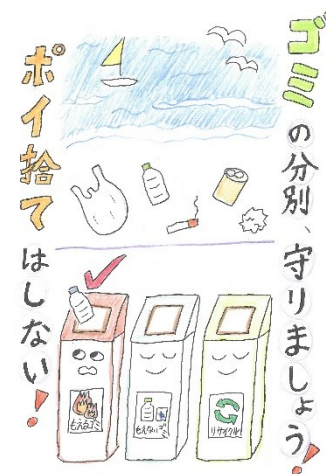 ゴミの分別、守りましょう!
ポイ捨てはしない!
もえるゴミ
もえないゴミ
リサイクル!